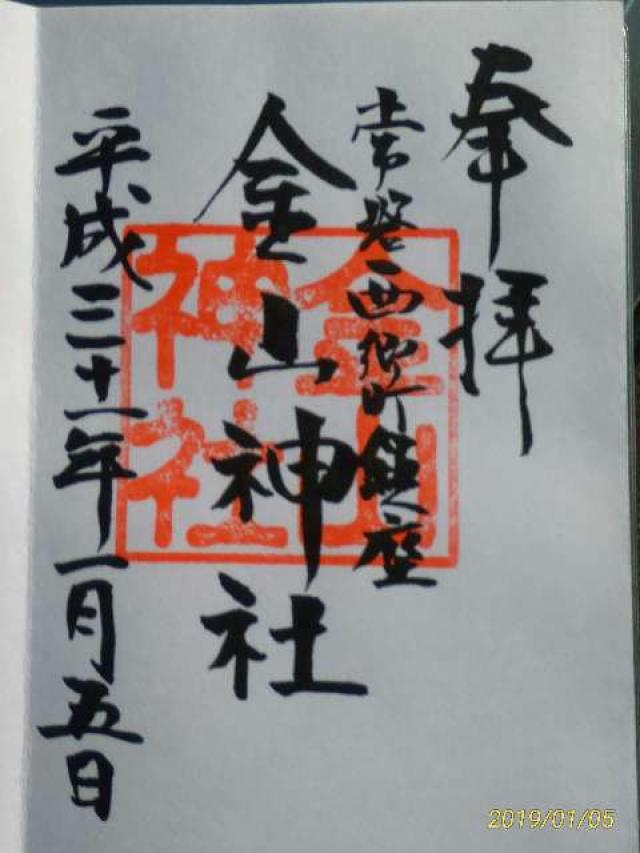 奉拝
常磐西郷町鎮座
金山神社
平成三十一年一月五日
金山
神社
2019/01/05